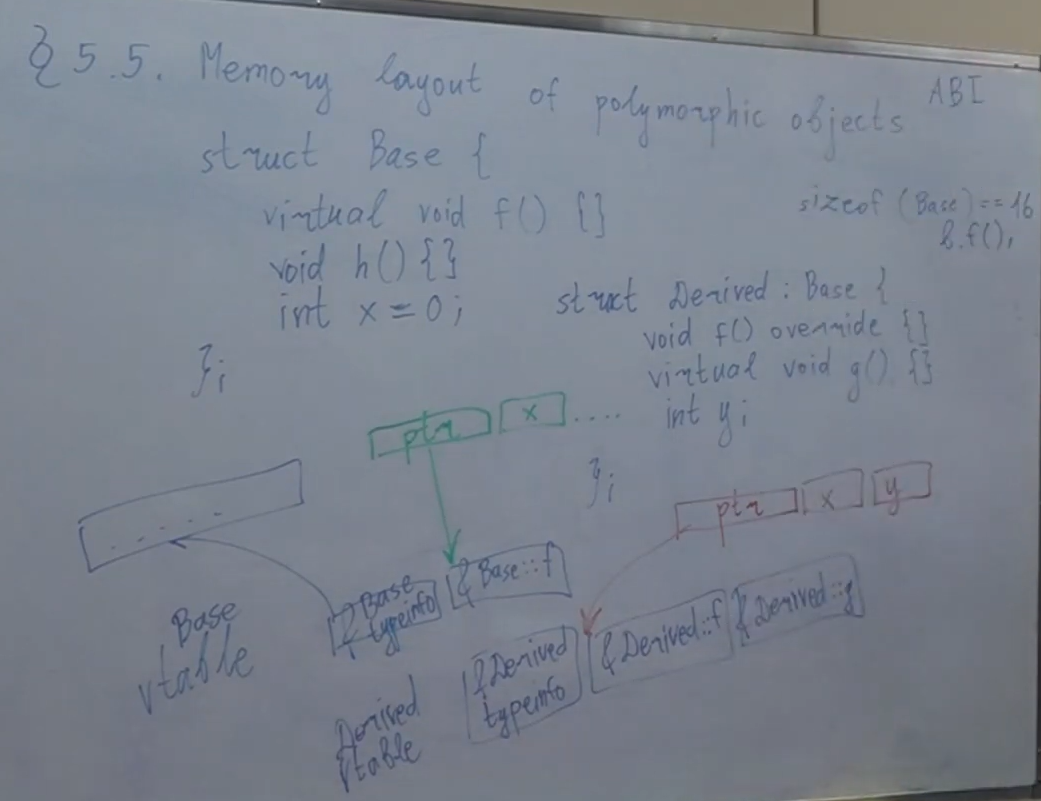 § 5.5. Memory layout of polymorphic objects
ABI
struct Base {
virtual void f() {}
void h() {}
int x = 0;
};
sizeof (Base) == 16
b.f();
struct Derived : Base {
void f() override {}
virtual void g() {}
int y;
};
ptr x ....
ptr x y
. . . .
Base
vtable
&Base
typeinfo
&Base::f
Derived
vtable
&Derived
typeinfo
&Derived::f
&Derived::g